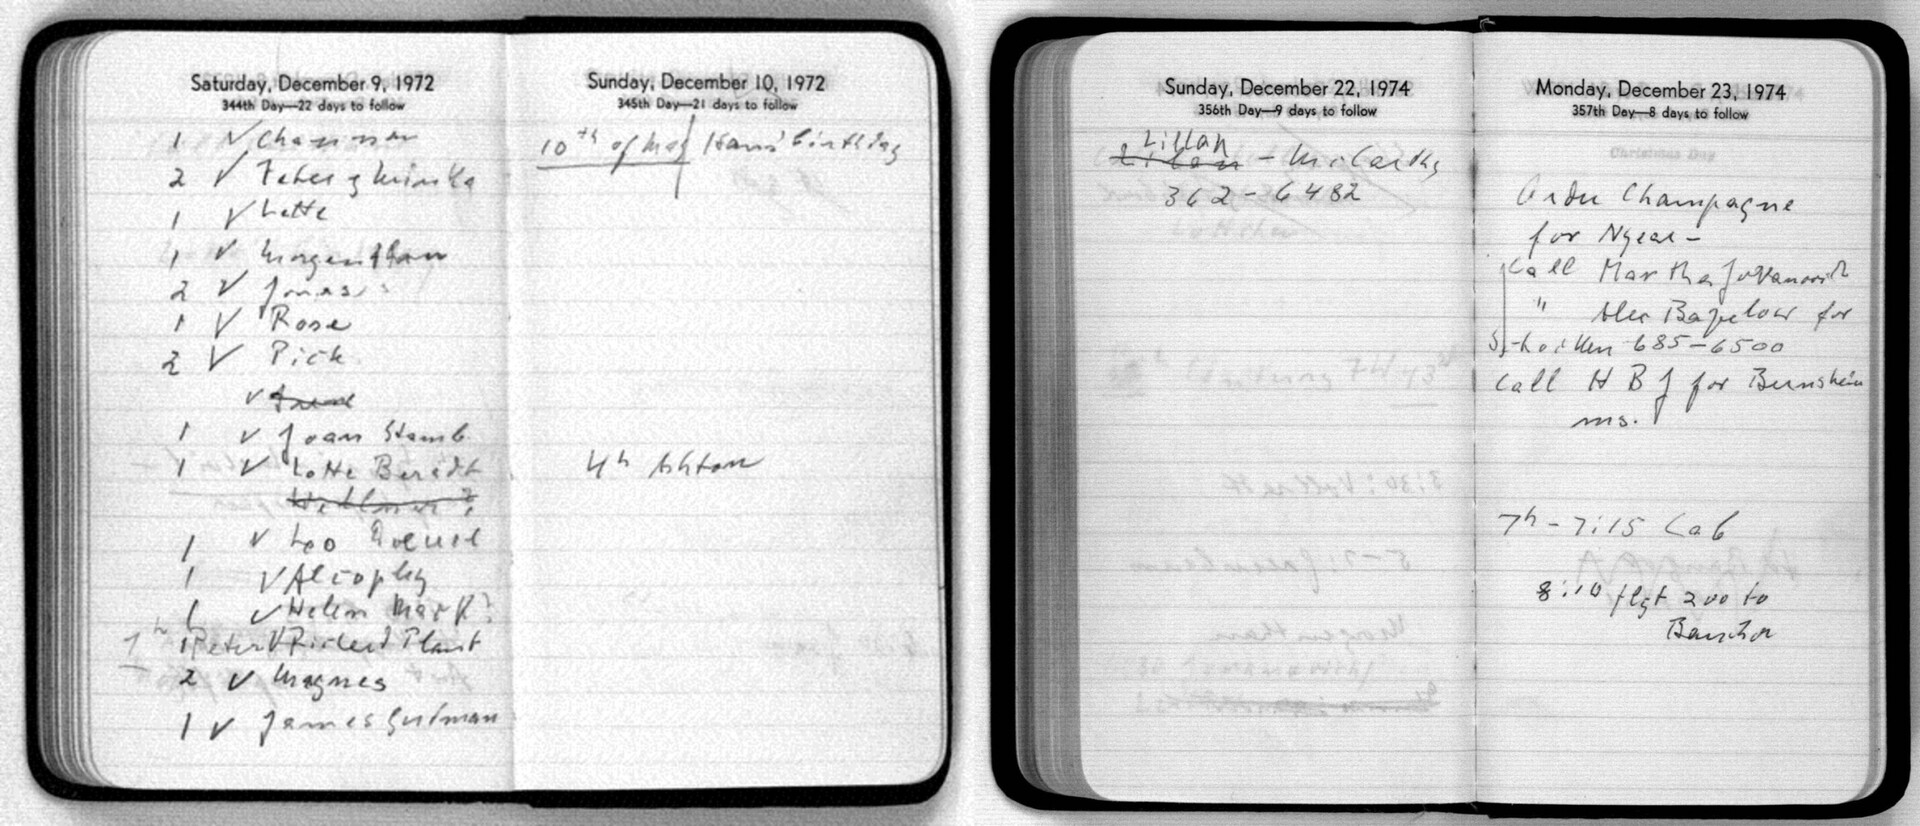 Saturday, December 9, 1972
344th Day—22 days to follow
1 ✓ Channan
2 ✓ Peter & Minka
1 ✓ Lotte
1 ✓ Morgenthau
2 ✓ Jonas
1 ✓ Rose
2 ✓ Pick
✓
1 ✓ Joan Stamb
1 ✓ Lotte Beradt
1 ✓ Loo
1 ✓ Alcopley
1 ✓ Helen
7h 1 Peter ✓ Plant
2 ✓ Magnes
1 ✓ James Gutman
Sunday, December 10, 1972
345th Day—21 days to follow
10th of May Hans' birthday
4h Ashton
Sunday, December 22, 1974
356th Day—9 days to follow
Lillan
- McCarthy
362-6482
Monday, December 23, 1974
357th Day—8 days to follow
Order Champagne
for Nyear -
Call Martha Jovanovich
" Alex Bazelow for
Schocken 685-6500
Call H B J for Bernstein
ms.
7h - 7:15 Cab
8:10 flgt 200 to